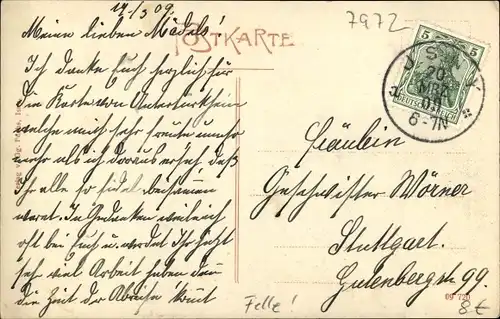 19/3 09.
7972
Meine lieben Mädels!
POSTKARTE
Ich danke Euch herzlich für
die Karte von Untertürkheim
welche mich sehr freute umso
mehr als ich daraus ersah daß
Ihr alle so fidel beisammen
waret. In Gedanken weile ich
oft bei Euch u. werdet Ihr jetzt
sehr viel Arbeit haben denn
die Zeit der Abreise kommt
5 5
DEUTSCHES REICH
20
MRZ
09
6-7N
Fräulein
Geschwister Wörner
Stuttgart.
Gutenbergstr 99.
Felle!
09 720
8€